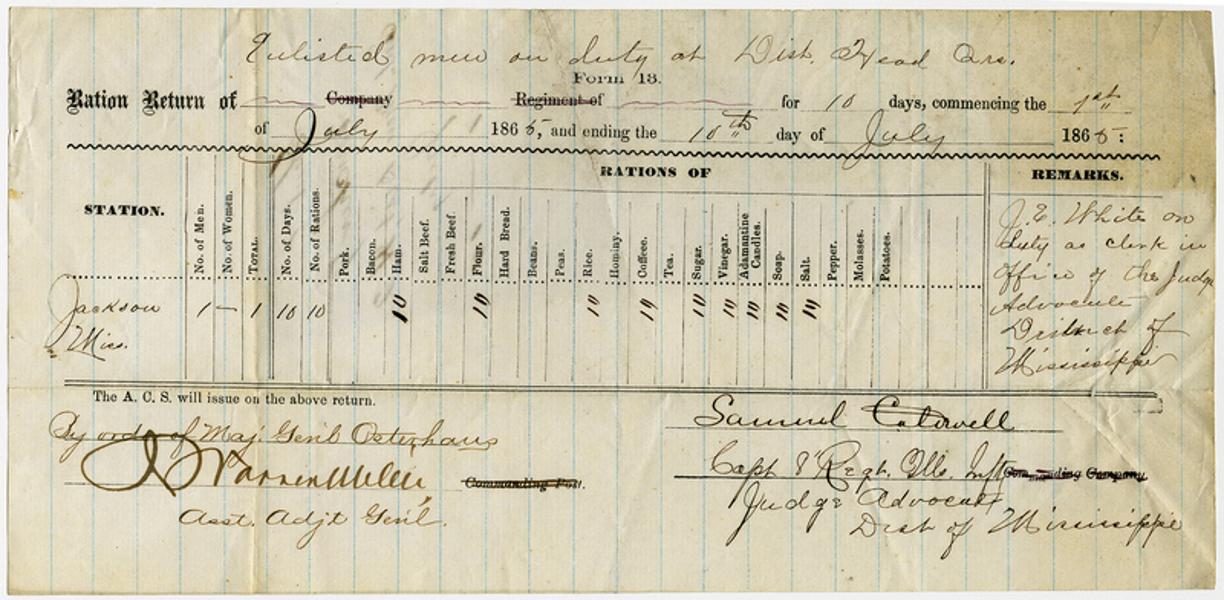 Enlisted men on duty at Dist. Head Qrs.
Form 13.
Ration Return of Company Regiment of for 10 days, commencing the 1st
of July 1865, and ending the 10th day of July 1865:
STATION.
No. of Men.
No. of Women.
TOTAL.
No. of Days.
No. of Rations.
RATIONS OF
Pork.
Bacon.
Ham.
Salt Beef.
Fresh Beef.
Flour.
Hard Bread.
Beans.
Peas.
Rice.
Hominy.
Coffee.
Tea.
Sugar.
Vinegar.
Adamantine Candles.
Soap.
Salt.
Pepper.
Molasses.
Potatoes.
REMARKS.
Jackson 1 — 1 10 10 10 10 10 10 10 10 10 10 10
Miss.
J. E. White on
duty as clerk in
Office of the Judge
Advocate
District of
Mississippi
The A. C. S. will issue on the above return.
By order of Maj. Genl Osterhaus
Commanding Post.
Asst. Adjt Genl.
Samuel Caldwell
Capt 8" Regt. Ills. Inft Commanding Company
Judge Advocate
Dist of Mississippi